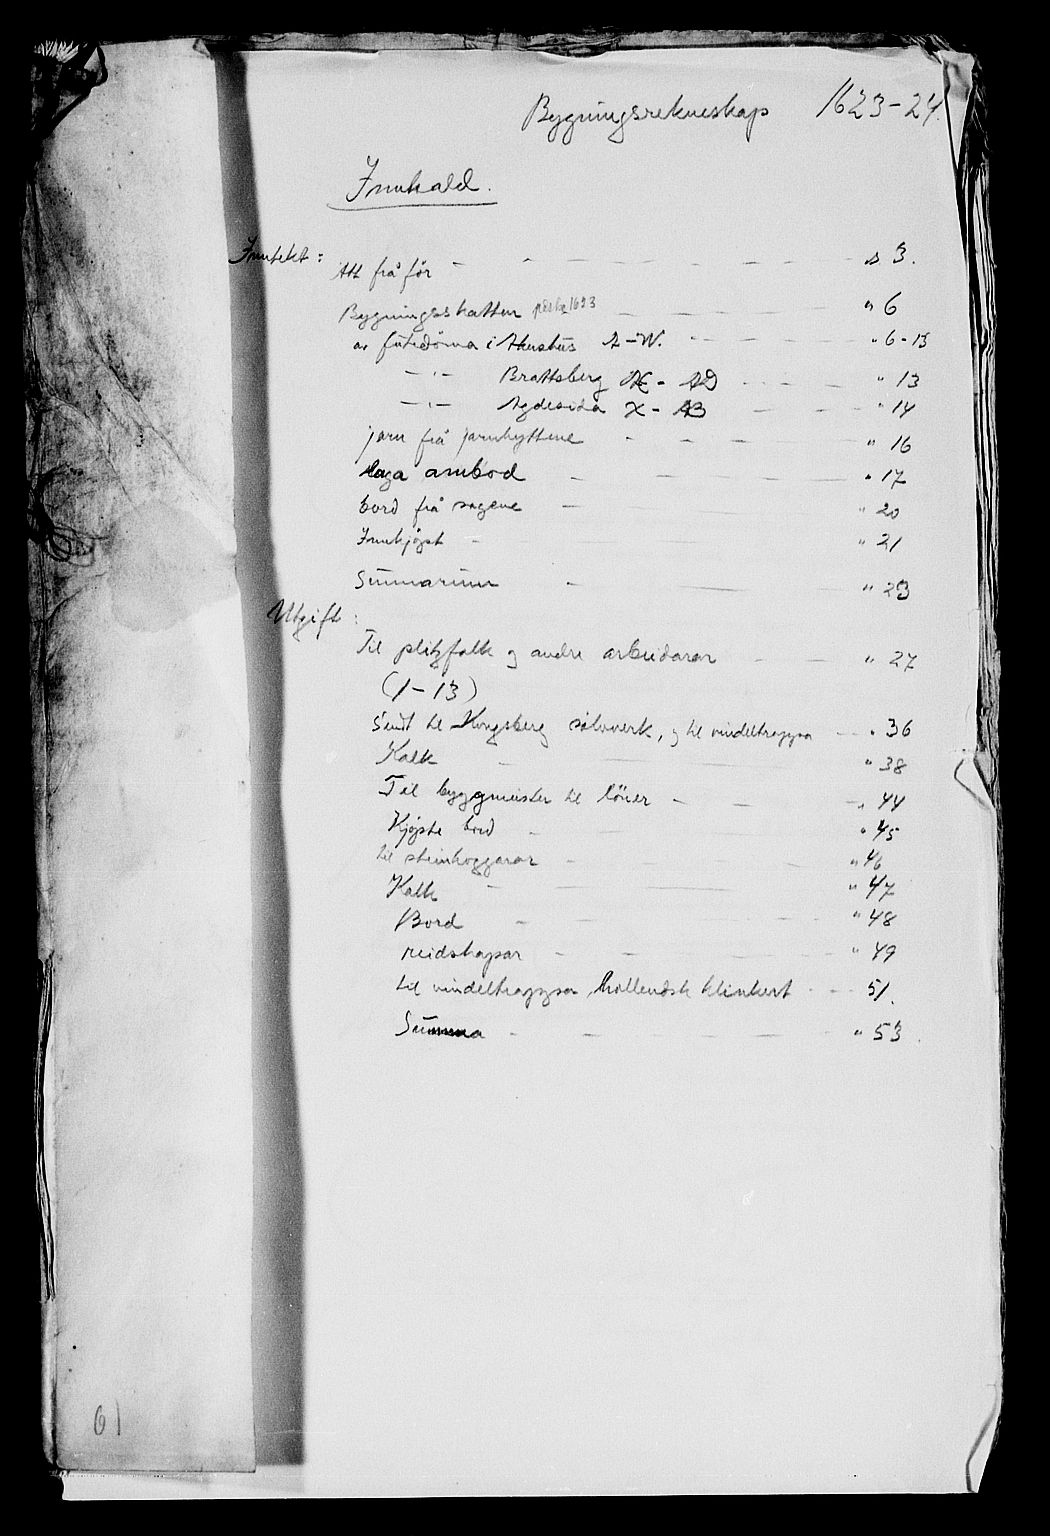 Bygningsrekneskap 1623-24.
Innhald.
Inntekt:
Att frå för - s 3.
Bygningsskatten påske 1623 - " 6
av futedöma i Akershus A-W. - " 6-13
-"- Brattsberg Æ - AD - " 13
-"- Agdesida X - AB - " 14
jarn frå jarnhyttene - " 16
laga ambod - " 17
bord frå sagene - " 20
Innkjøpt - " 21
Summarium - " 23
Utgift:
Til plitzfolk og andre arbeidarar - " 27
(1-13)
Sendt til Kongsberg sölvverk, og til vindeltrappa - " 36
Kalk - " 38
Til byggmeister til löner - " 44
Kjøpte bord - " 45
til steinhoggarar - " 46
Kalk - " 47
Bord - " 48
reidskapar - " 49
til vindeltrappa, hollendsk klinkert - 51.
Summa - " 53.
61